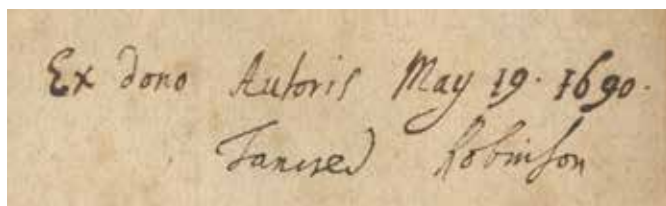 Ex dono Autoris May 19. 1690.
Tancred Robinson